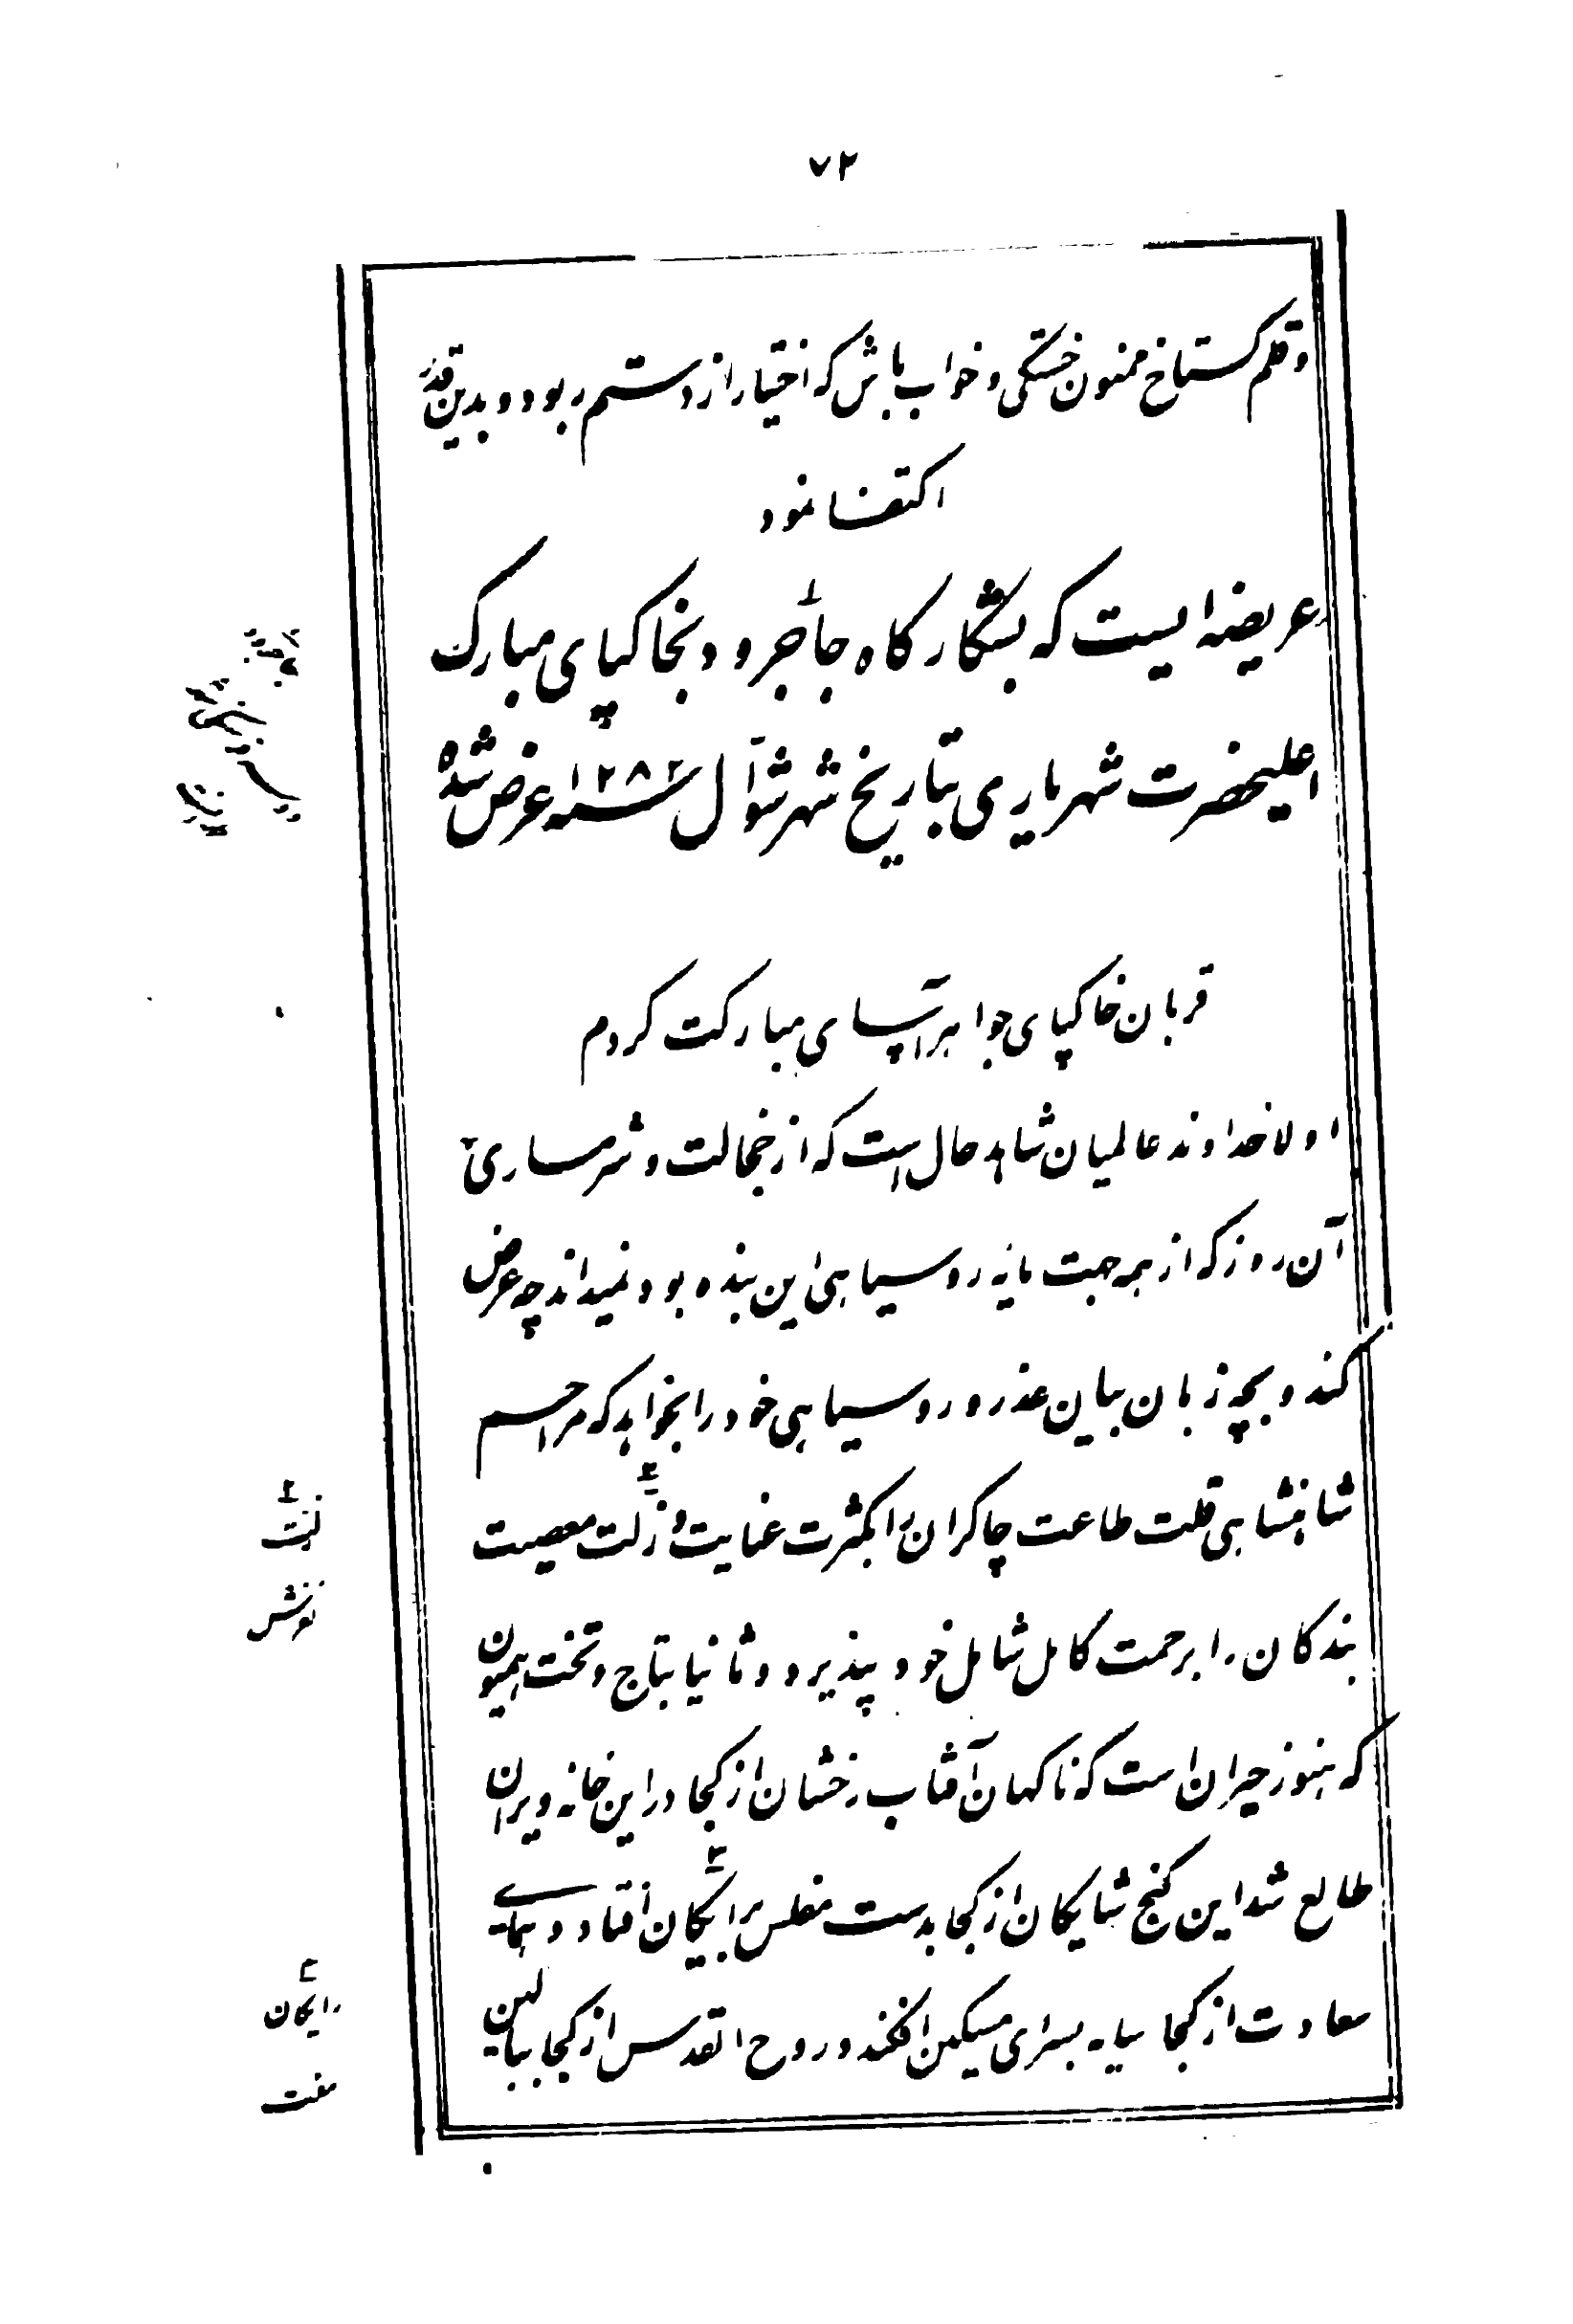 ۷۲
و قلم کستاخ ممنون خستکی و خواب باش که اختیار از دستم ربود و بدین قدر
اکتفا نمود
عریضه ایست که بشکارکاه جاجرود بخاکپای مبارک
اعلیحضرت شهریاری بتاریخ شهر شوال سنه ۱۲۸۲ عرض شده
قربان خاکپای جواهر آسای مبارکت کردم
اولا خداوند عالمیان شاهد حال است که از خجالت و شرمساری
آن روز که از همه جهت مایه روسیاهی این بنده بود نمیداند چه عرض
کند و بچه زبان بیان عذر و روسیاهی خود را بخواهد که مراحم
شاهنشاهی قلت طاعت چاکران را بکثرت عنایت و زلت معصیت
۲
بندکان را برحمت کامل شامل خود پذیرد و ثانیا بتاج و تخت همیون
که هنوز حیران است که ناکهان آفتاب رخشان از کجا در این خانه ویران
طالع شد این کنج شایکان از کجا بدست مفلس برایکان افتاد و همای
۳
سعادت از کجا سایه بسرای مسکین افکند و روح القدس از کجا ببالین
۲
زلت
لغزش
۳
رایکان
مفت